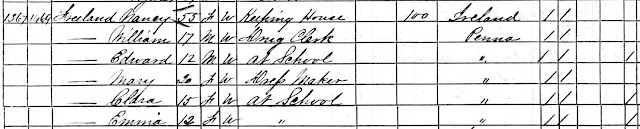 1367 1469 Freeland Nancy 55 F W Keeping House 100 Ireland 1 1
— William 17 M W Drug Clerk Penna 1 1
— Edward 12 M W at School " 1 1 1
— Mary 20 F W Dress Maker " 1 1
— Clara 15 F W at School " 1 1 1
— Emma 12 F W " " 1 1 1